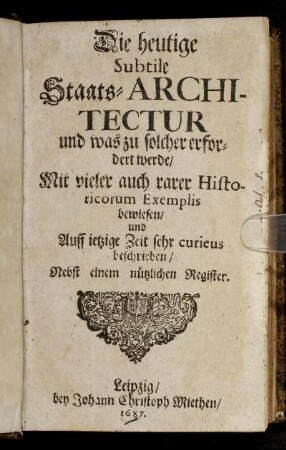 Die heutige
Subtile
Staats-ARCHI-
TECTUR
und was zu solcher erfor-
dert werde/
Mit vieler auch rarer Histo-
ricorum Exemplis
bewiesen/
und
Auff ietzige Zeit sehr curieus
beschrieben/
Nebst einem nützlichen Register.
Leipzig/
bey Johann Christoph Miethen/
1687.